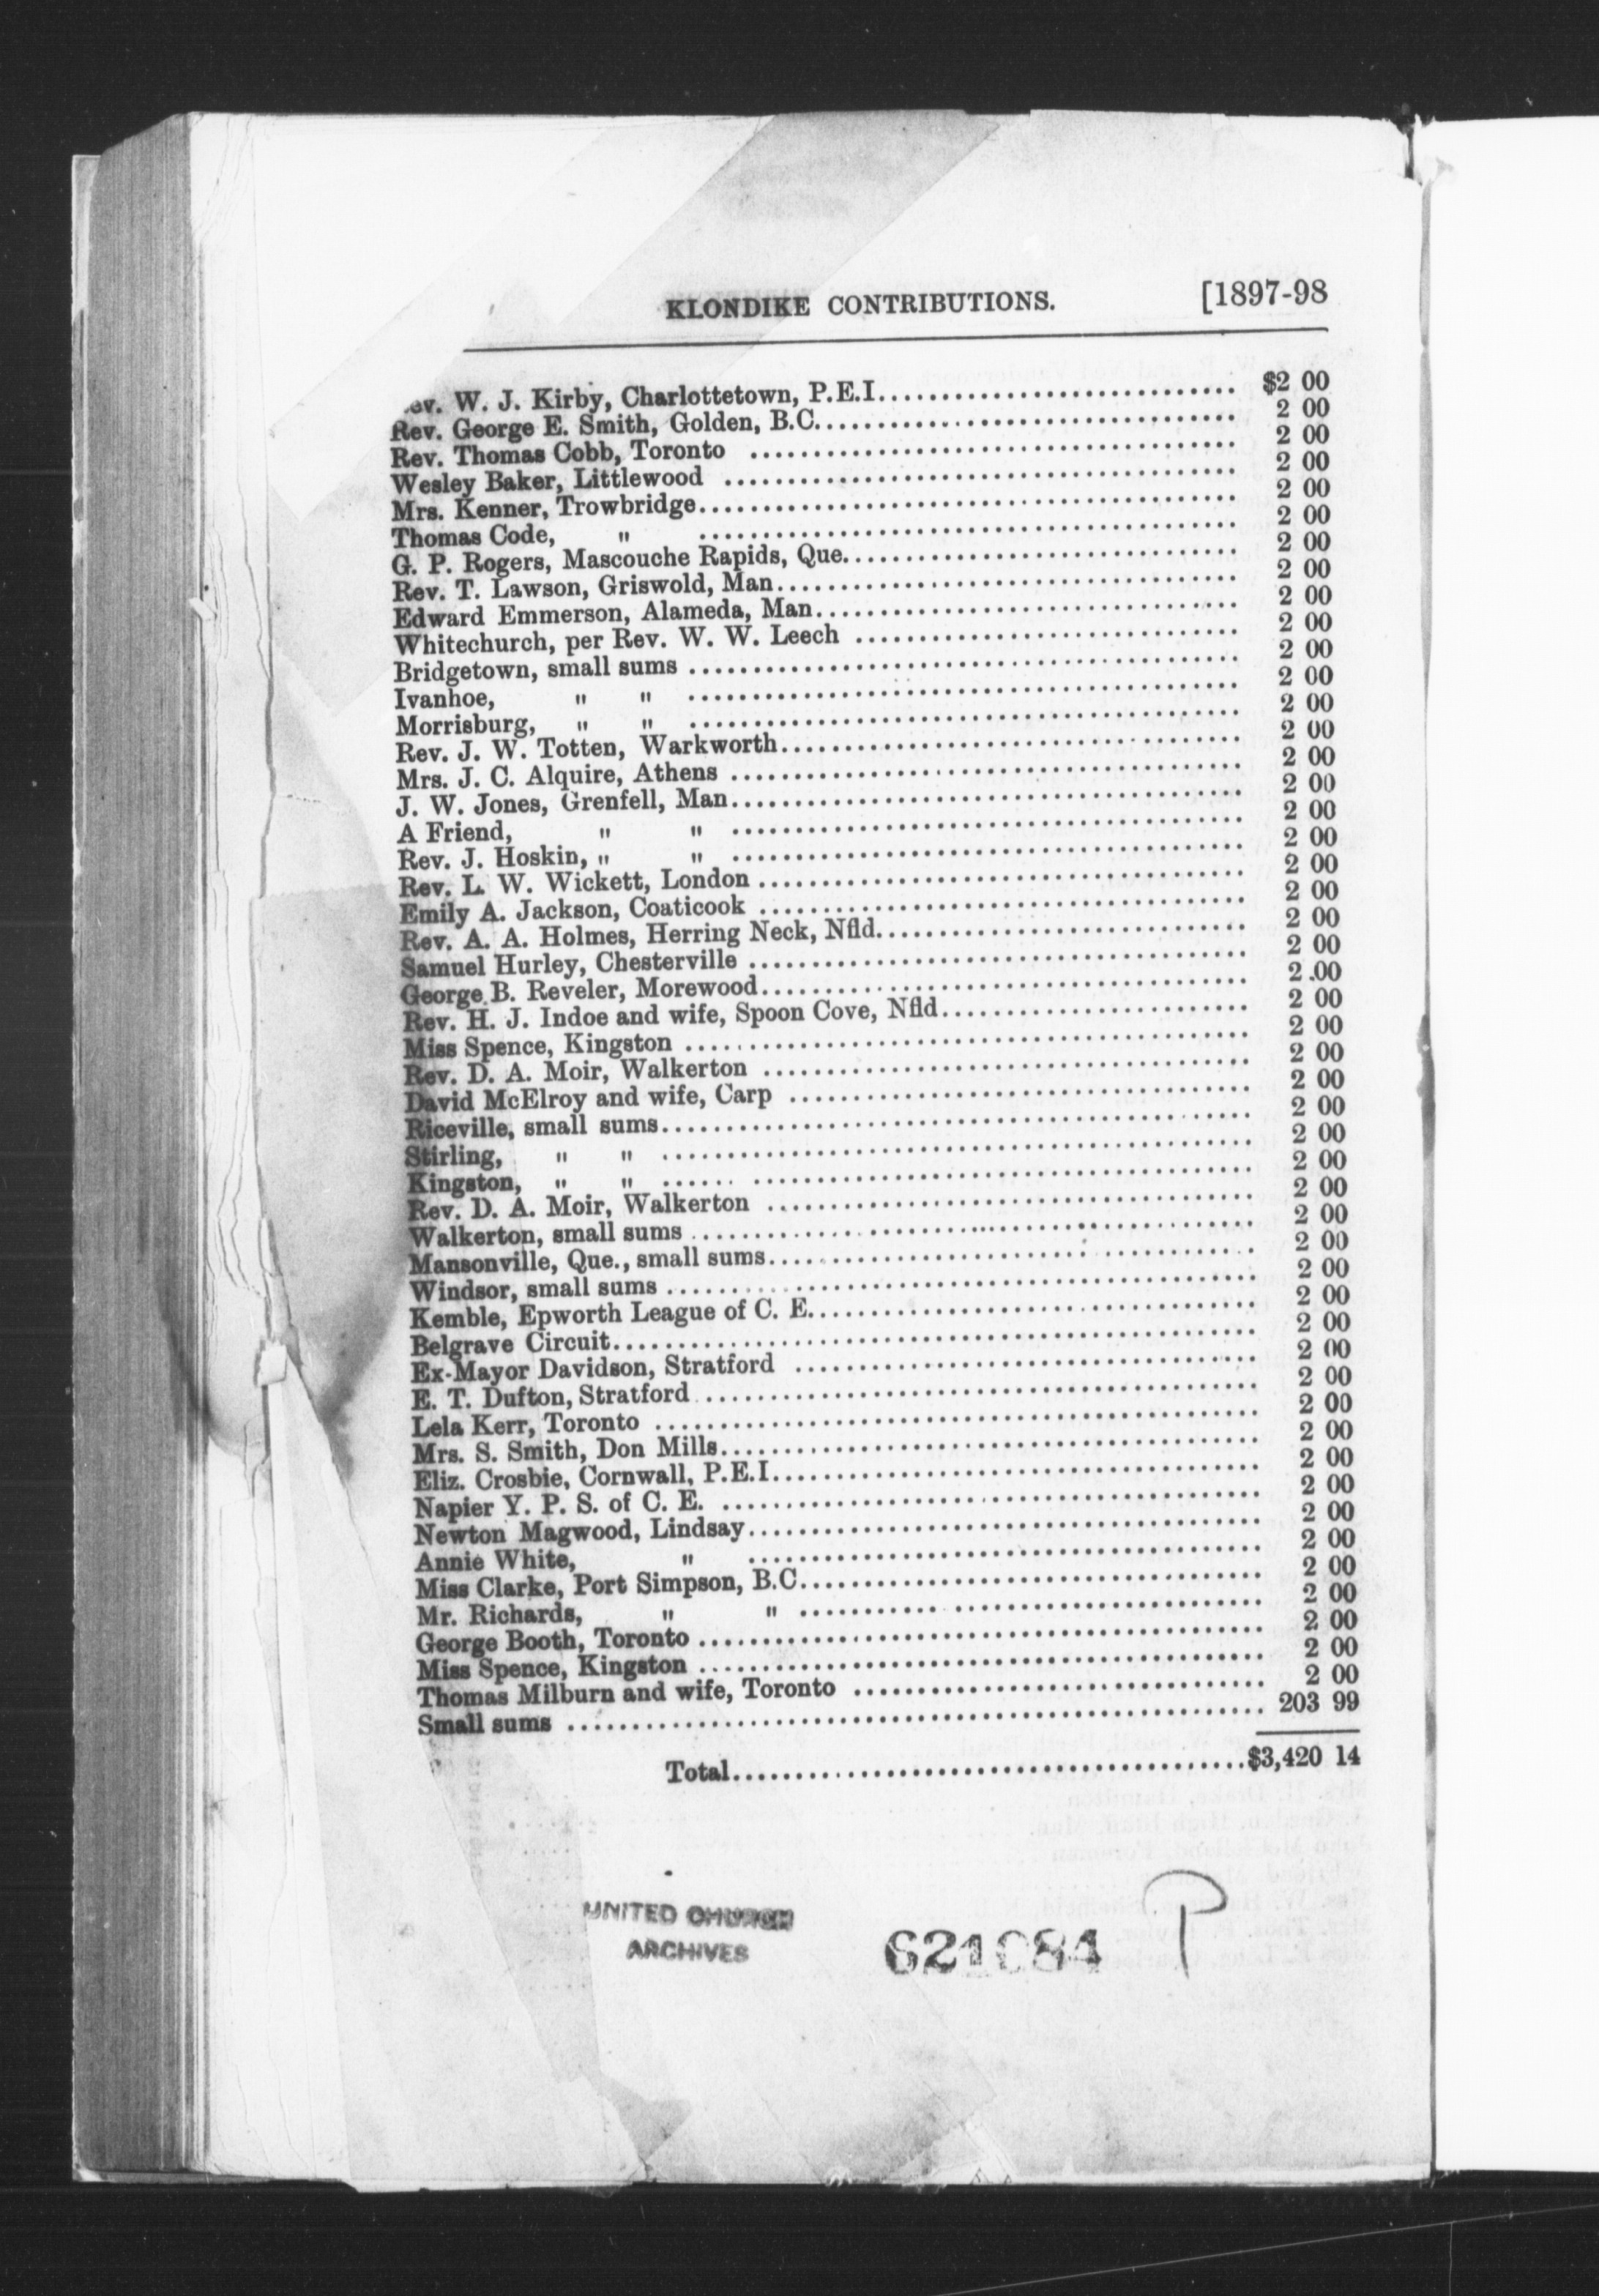 KLONDIKE CONTRIBUTIONS. [1897-98
ev. W. J. Kirby, Charlottetown, P.E.I. $2 00
Rev. George E. Smith, Golden, B.C. 2 00
Rev. Thomas Cobb, Toronto 2 00
Wesley Baker, Littlewood 2 00
Mrs. Kenner, Trowbridge 2 00
Thomas Code, " 2 00
G. P. Rogers, Mascouche Rapids, Que. 2 00
Rev. T. Lawson, Griswold, Man. 2 00
Edward Emmerson, Alameda, Man. 2 00
Whitechurch, per Rev. W. W. Leech 2 00
Bridgetown, small sums 2 00
Ivanhoe, " " 2 00
Morrisburg, " " 2 00
Rev. J. W. Totten, Warkworth 2 00
Mrs. J. C. Alquire, Athens 2 00
J. W. Jones, Grenfell, Man. 2 00
A Friend, " " 2 00
Rev. J. Hoskin, " " 2 00
Rev. L. W. Wickett, London 2 00
Emily A. Jackson, Coaticook 2 00
Rev. A. A. Holmes, Herring Neck, Nfld. 2 00
Samuel Hurley, Chesterville 2 00
George B. Reveler, Morewood 2 00
Rev. H. J. Indoe and wife, Spoon Cove, Nfld. 2 00
Miss Spence, Kingston 2 00
Rev. D. A. Moir, Walkerton 2 00
David McElroy and wife, Carp 2 00
Riceville, small sums 2 00
Stirling, " " 2 00
Kingston, " " 2 00
Rev. D. A. Moir, Walkerton 2 00
Walkerton, small sums 2 00
Mansonville, Que., small sums 2 00
Windsor, small sums 2 00
Kemble, Epworth League of C. E. 2 00
Belgrave Circuit 2 00
Ex-Mayor Davidson, Stratford 2 00
E. T. Dufton, Stratford 2 00
Lela Kerr, Toronto 2 00
Mrs. S. Smith, Don Mills 2 00
Eliz. Crosbie, Cornwall, P.E.I. 2 00
Napier Y. P. S. of C. E. 2 00
Newton Magwood, Lindsay 2 00
Annie White, " 2 00
Miss Clarke, Port Simpson, B.C. 2 00
Mr. Richards, " " 2 00
George Booth, Toronto 2 00
Miss Spence, Kingston 2 00
Thomas Milburn and wife, Toronto 2 00
Small sums 203 99
Total $3,420 14
UNITED CHURCH
ARCHIVES
621084 P